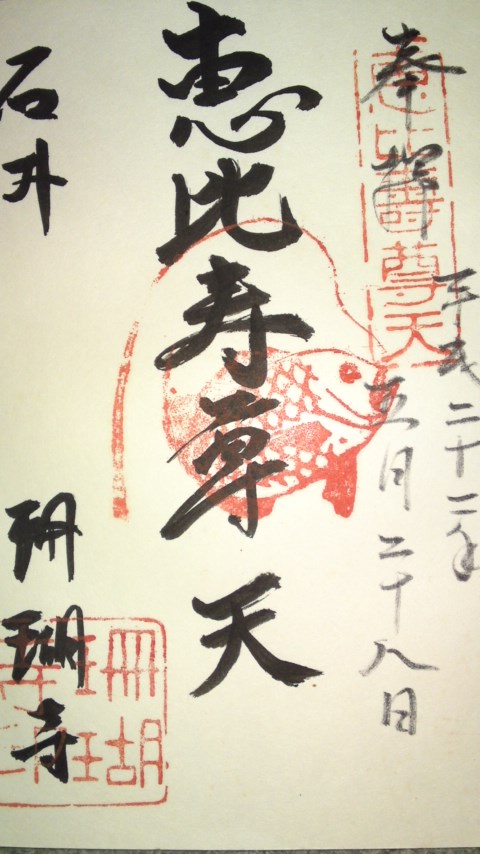 奉拝
平成二十二年
五月二十八日
恵比寿尊天
石井
珊瑚寺
恵比寿尊天